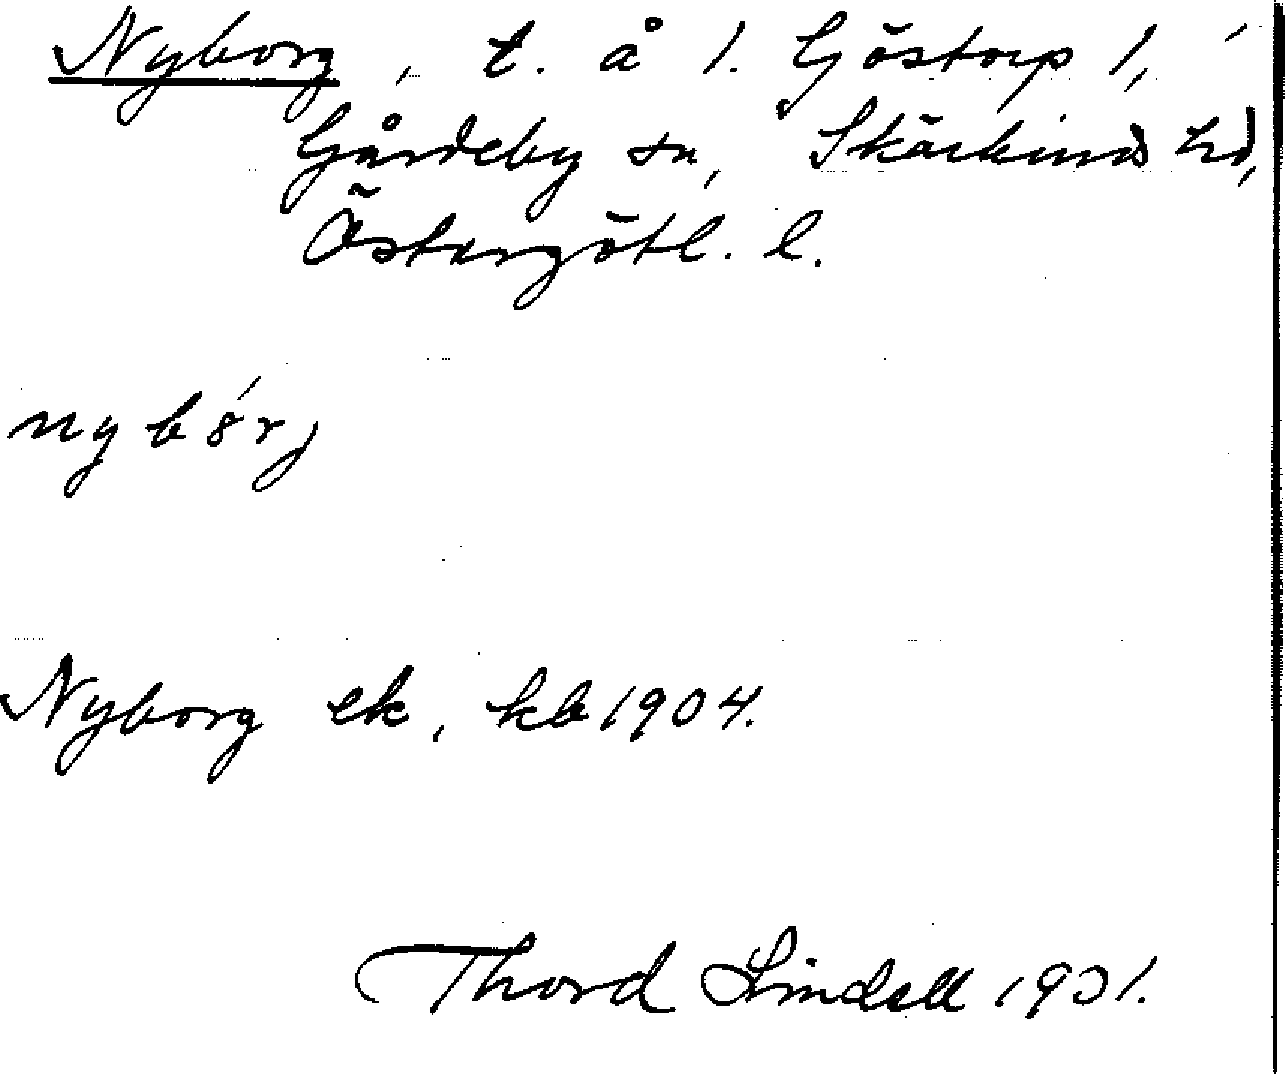 Nyborg, t. å 1. Göstorp 1,
Gårdeby sn, Skärkinds hd,
Östergötl. l.
nybórj
Nyborg ek, kb 1904.
Thord Lindell 1931.